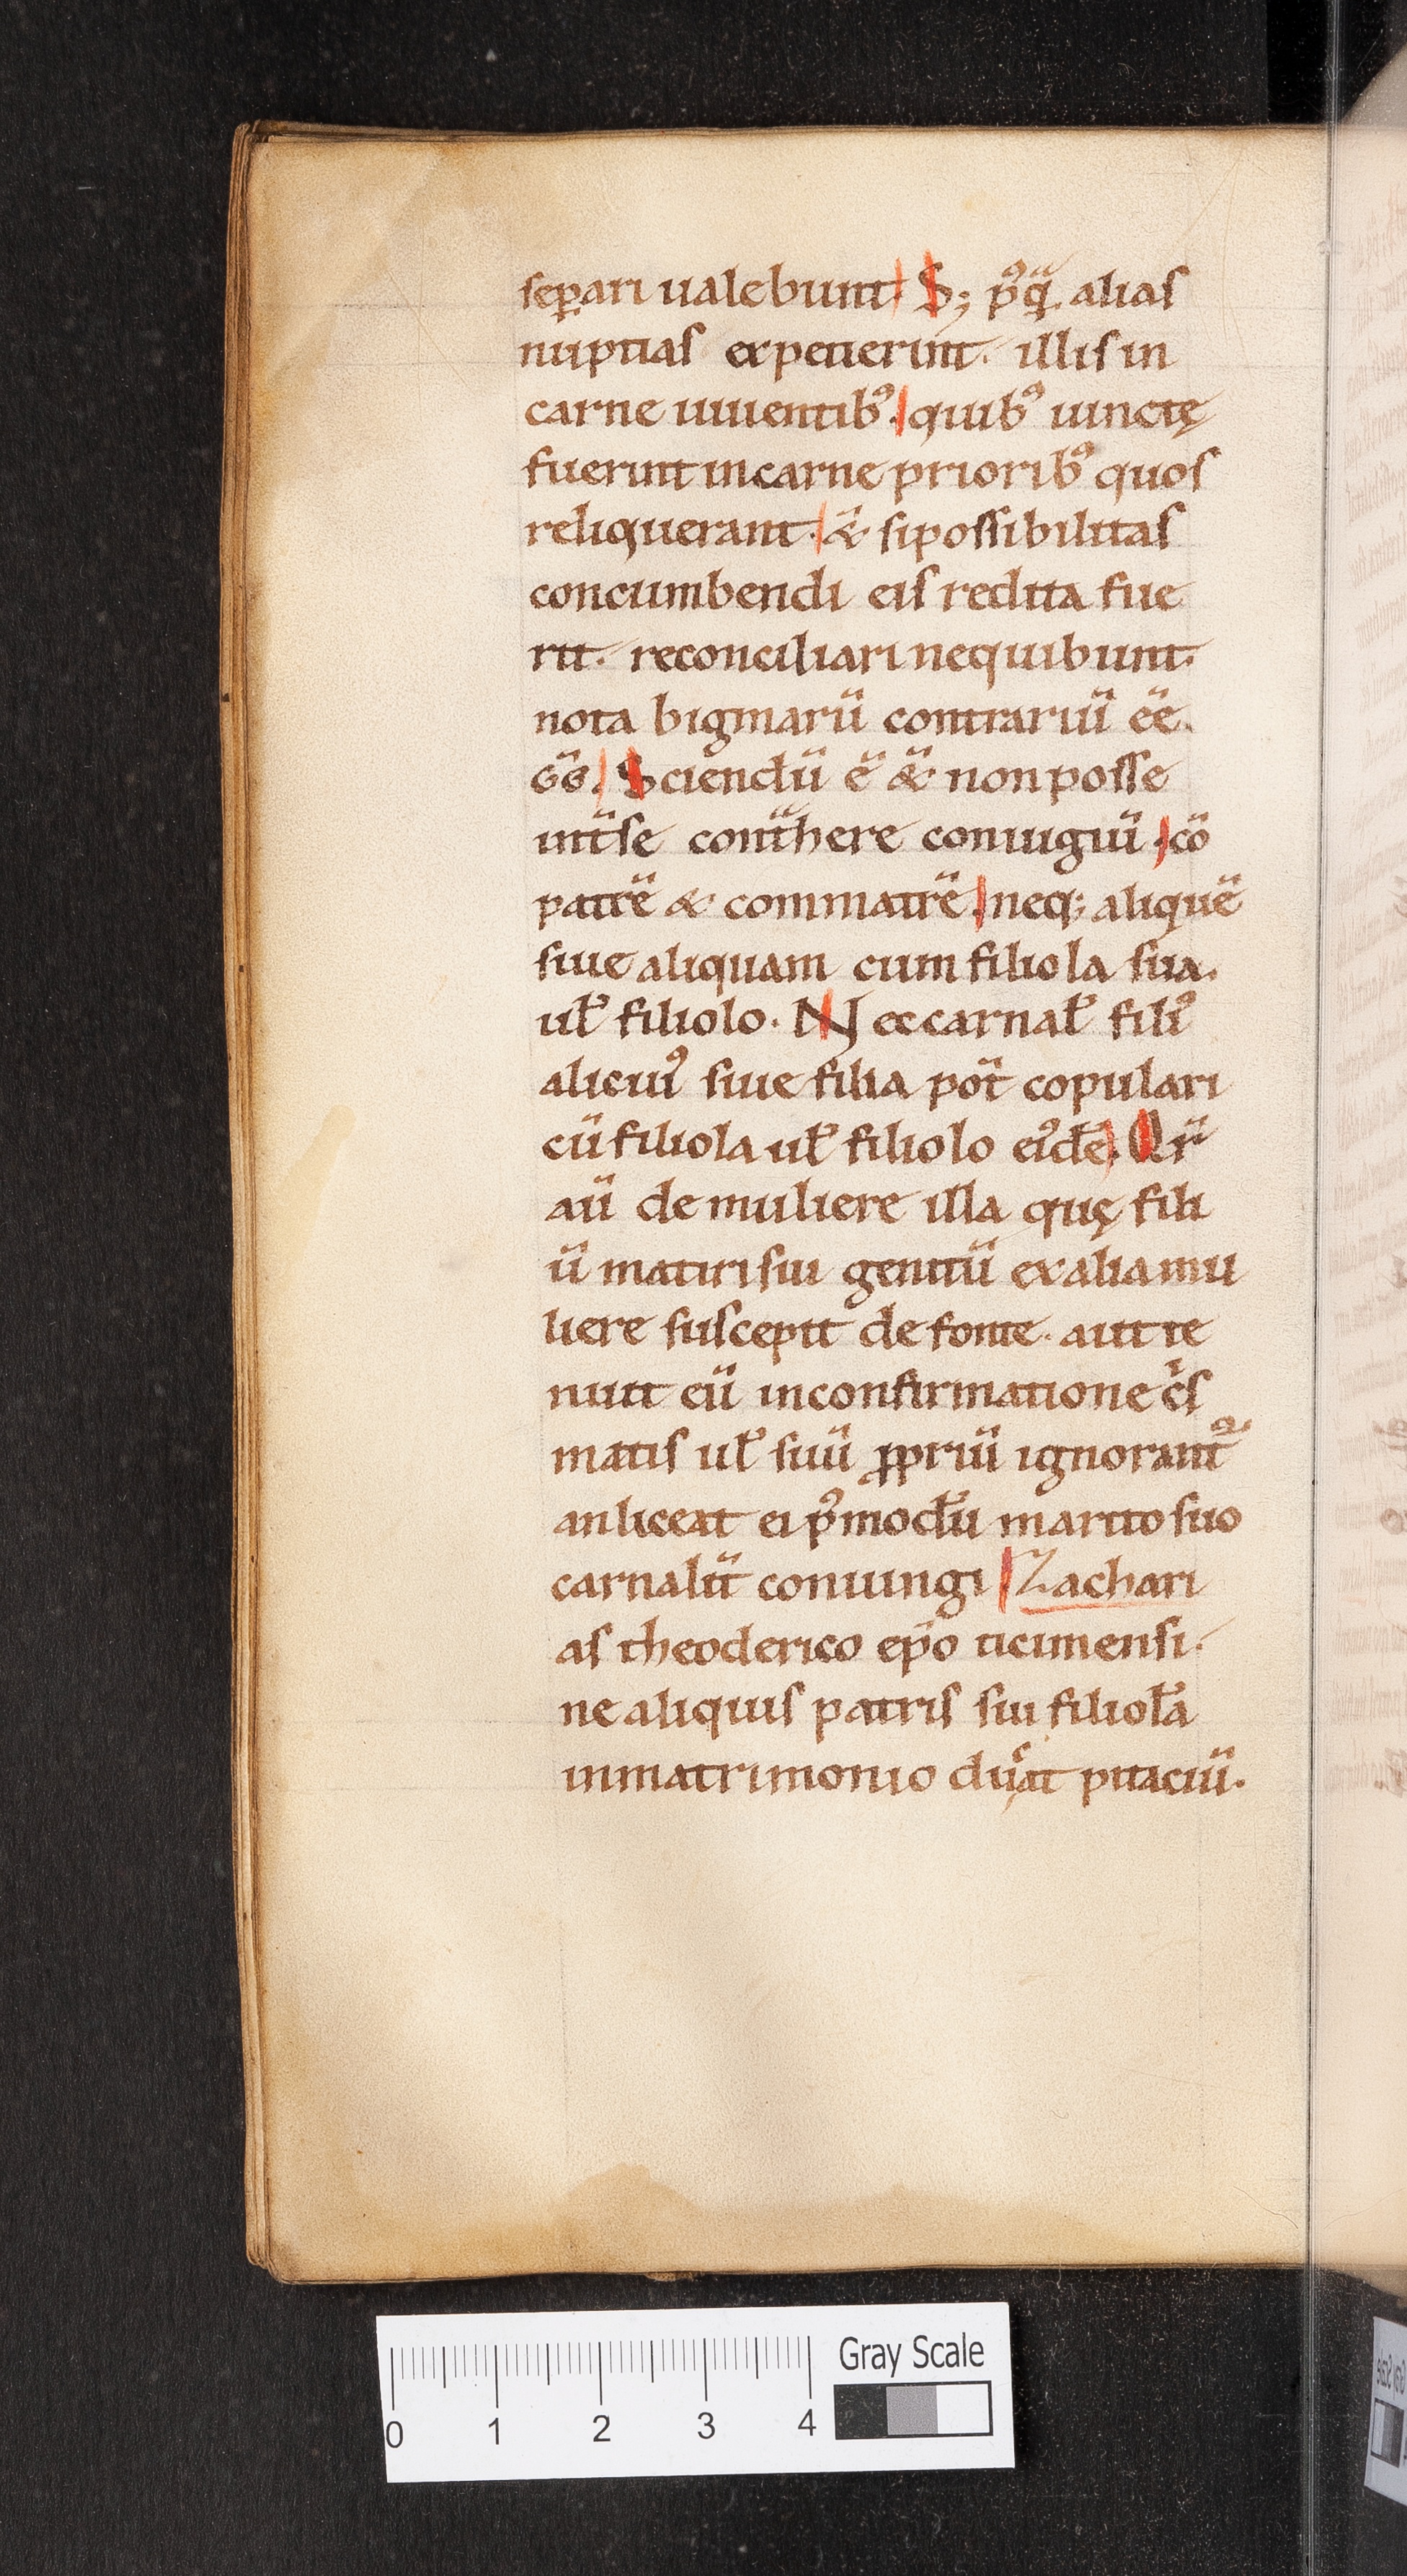 separi ualebunt. S; p̾q̄. alias
nuptias expetierint. illis in
carne uiuentib᾽. quib᾽ uinctę
fuerint in carne priorib᾽ quos
reliquerant. & si possibilitas
concumbendi eis reddita fue
rit. reconciliari nequibunt.
nota bigmarū contrariū eē.
GG. Sciendū ē & non posse
int̄ se cont̄here coniugiū. cō
patrē & commatrē. neq; aliquē
siue aliquam cum filiola sua.
ul̄ filiolo. Nec carnal̄ fili᾽
alicui᾽ siue filia pot̄ copulari
cū filiola ul̄ filiolo ei᾽dē. Qr̄
aū de muliere illa quę fili
ū mariti sui genitū ex alia mu
liere suscepit de fonte. aut te
nuit eū in confirmatione c̄s
matis ul̄ suū ꝓpriū ignorant᾽
an liceat ei p᾽modū marito suo
carnalit̄ coniungi Zachari
as theoderico ep̄o ticinensi.
ne aliquis patris sui filiolā
in matrimonio ducat pitaciū.
0 1 2 3 4 Gray Scale